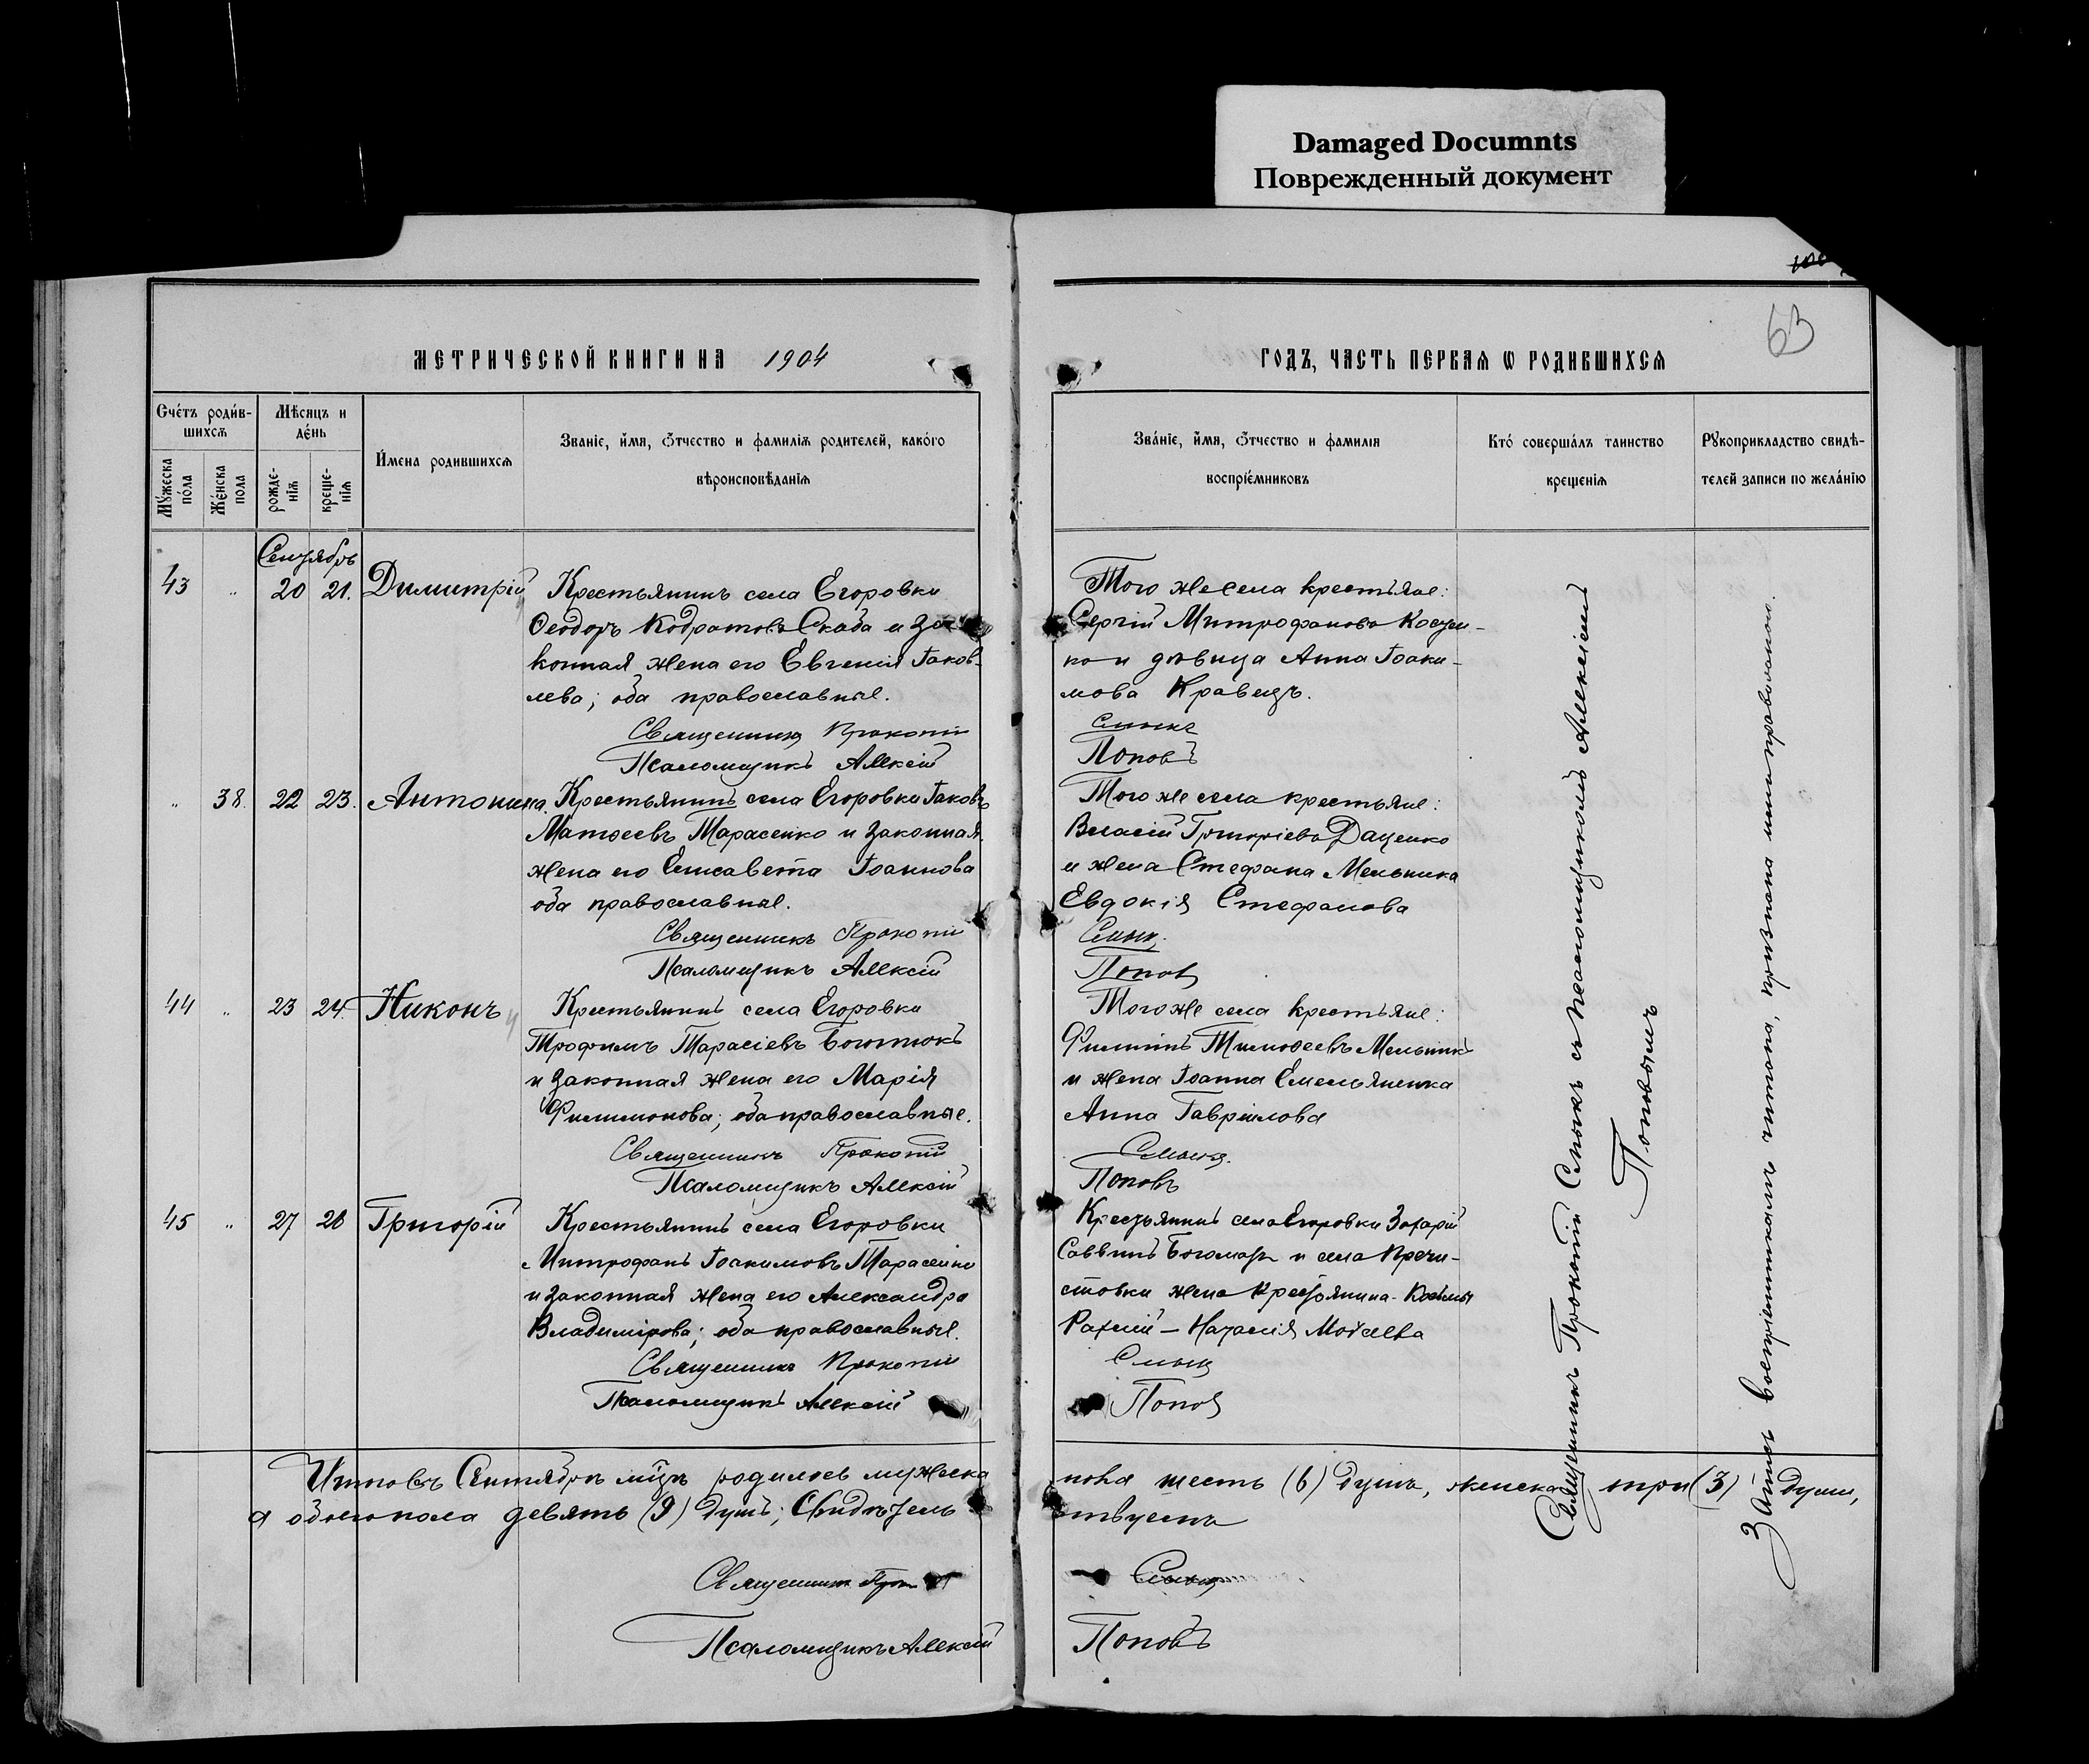 Damaged Documnts
Поврежденный документ
63
МЕТРИЧЕСКОЙ КНИГИ НА 1904
ГОДЪ, ЧАСТЬ ПЕРВАЯ Ѡ РОДИВШИХСЯ
Счéтъ роди́в-
шихсѧ
Мѣсяцъ и
де́нь
Мꙋ́жеска
по́ла
Же́нска
пола
рожде-
нїѧ
креще-
нїѧ
И́мена родившихсѧ
Званіе, и́мя, Ѻтчество и фамиліѧ родителей, како́го
вѣроисповѣданіѧ
Зва́ніе, и́мя, Ѻтчество и фамилія
воспріе́мниковъ
Кто́ соверша́лъ таинство
крещеніѧ
Рꙋкоприкладство свидѣ-
телей записи по жела́нію
Сентябрь
43 " 20 21. Димитрій
Крестьянинъ села Егоровки
Ѳеодоръ Кодратовъ Скаба и за-
конная жена его Евгенія Іаков-
лева; оба православные.
Священникъ Прокопій
Псаломщикъ Алексій
Того же села крестьяне:
Сергій Митрофановъ
и дѣвица Анна Іоаки-
мова Кравецъ.
Смыкъ
Поповъ
" 38. 22 23. Антонина.
Крестьянинъ села Егоровки Іаковъ
Матѳеевъ Тарасенко и законная
жена его Елисавета Іоаннова
оба православные.
Священникъ Прокопій
Псаломщикъ Алексій
Того же села крестьяне:
Власій Григоріевъ Даценко
и жена Стефана Мельника
Евдокія Стефанова
Смыкъ
Поповъ
44 " 23 24. Никонъ
Крестьянинъ села Егоровки
Трофимъ Тарасіевъ
и законная жена его Марія
Филимонова; оба православные.
Священникъ Прокопій
Псаломщикъ Алексій
Того же села крестьяне:
Филиппъ Тимоѳеевъ Мельникъ
и жена Іоанна Емельяненка
Анна Гавріилова
Смыкъ.
Поповъ
45 " 27 28 Григорій
Крестьянинъ села Егоровки
Митрофанъ Іоакимовъ Тарасенко
и законная жена его Александра
Владимірова; оба православные.
Священникъ Прокопій
Псаломщикъ Алексій
Крестьянинъ села Егоровки Захарій
Саввинъ и села Пречи-
стовки жена крестьянина Космы
Наталія Моѵсеева
Смыкъ
Поповъ
Священникъ Прокопій Смыкъ съ псаломщикомъ Алексіемъ
Поповымъ
Запись воспріемникамъ читана, признана ими правильною.
Итого въ Сентябрѣ мцѣ родилось мужеска
пола шесть (6) душъ, женска три (3) души,
а обоего пола девять (9) душъ; Свидѣтель-
ствуемъ
Священникъ
Смыкъ
Псаломщикъ Алексій
Поповъ